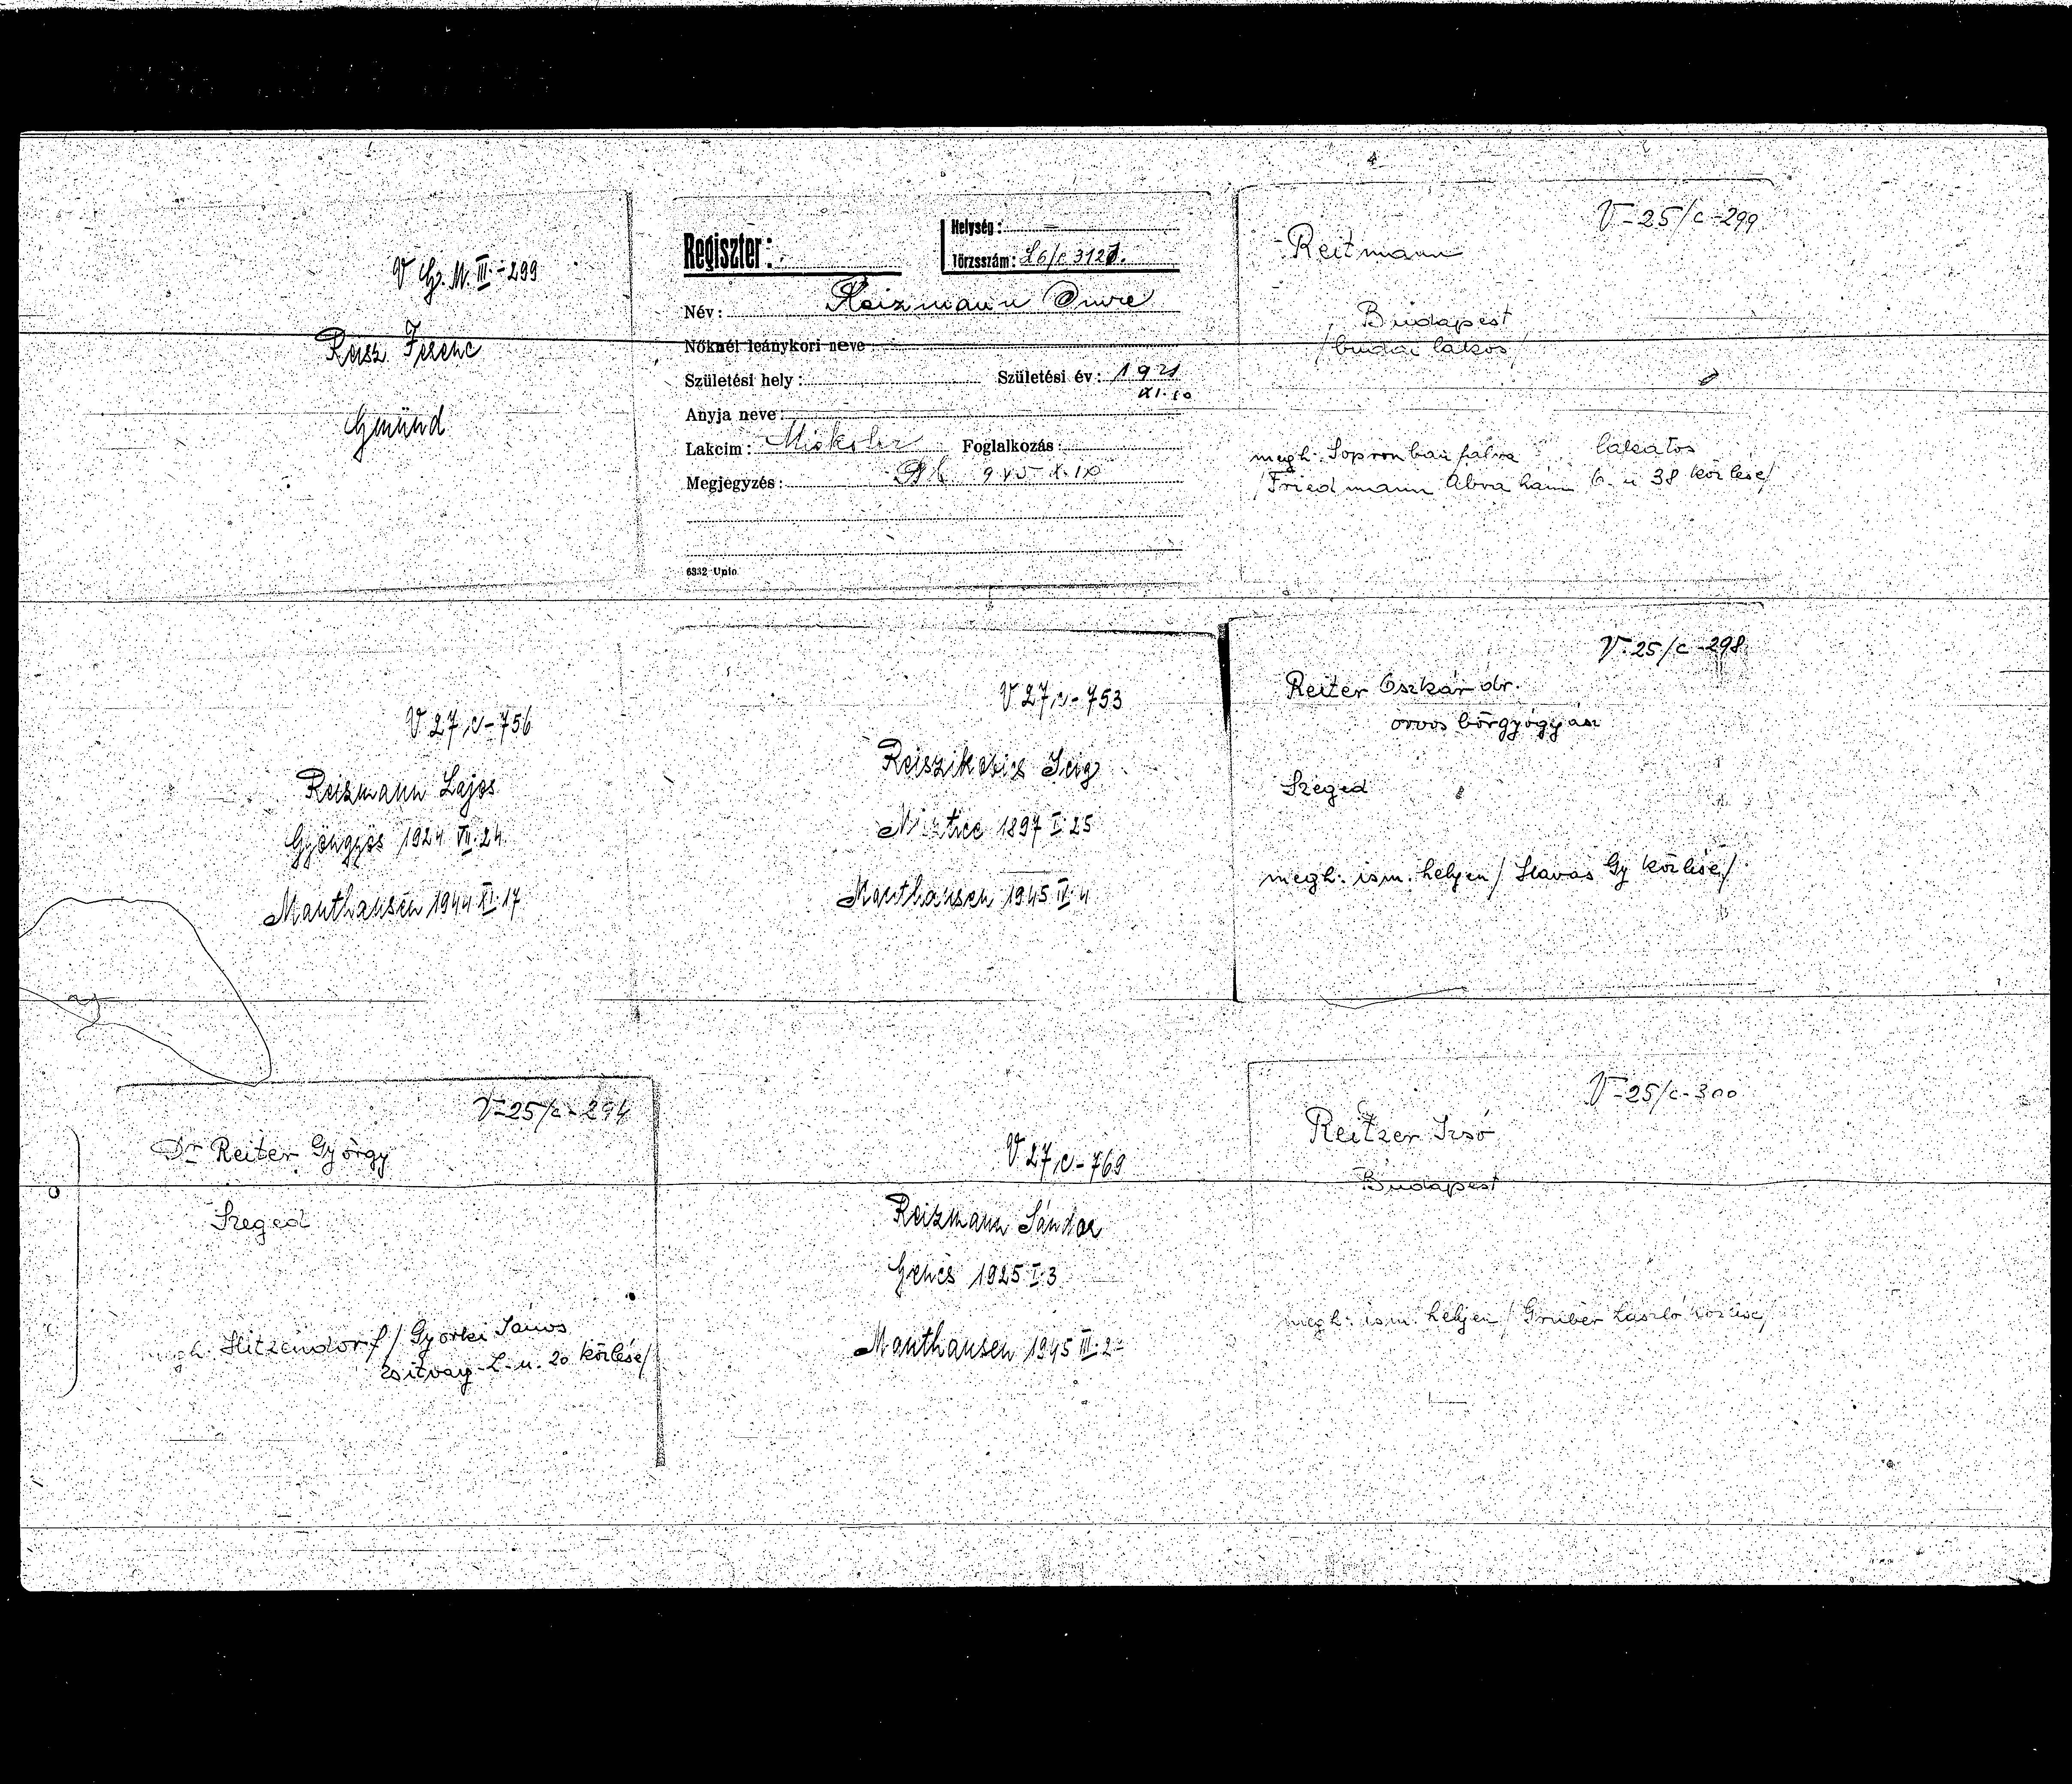 V Gz. M. III.-299
Reisz Ferenc
Gmünd
Regiszter:
Helység:
Törzsszám: L6/c 3127.
Név: Reizmann Imre
Nőknél leánykori neve:
Születési hely: Születési év: 1921
XI.10
Anyja neve:
Lakcim: Miskolc Foglalkozás:
Megjegyzés: 945 X.IX
6332 Unio
V-25/c-299
Reitmann
Budapest
/budai lakos/
megh. Sopronbánfalva lakatos
/Friedmann Ábrahám 6. u 38 közlése/
V 27/c-756
Reizmann Lajos
Gyöngyös 1924 VII.24.
Mauthausen 1944 XI.17
V 27/c-753
Reiszikovics Icig
1897 I.25
Mauthausen 1945 IV.4
V.25/c-298
Reiter Oszkár dr.
orvos bőrgyógyász
Szeged
megh. ism. helyen/Havas Gy közlése/
V-25/c-294
Dr Reiter György
Szeged
megh. Hitzendorf/Györki János
Zsitvay L. u. 20 közlése/
V 27/c-769
Reizmann Sándor
Gencs 1925 I.3
Mauthausen 1945 III.2
V-25/c-300
Reitzer Izsó
Budapest
megh. ism. helyen/Gruber László közlése/